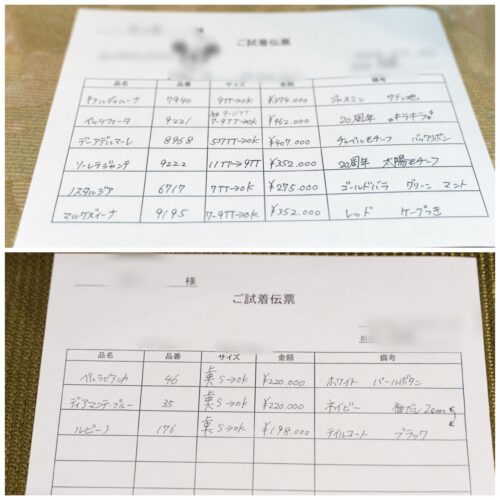 ご試着伝票
品名 品番 サイズ 金額 備考
7940 9TT→OK ¥374,000 ジャスミン サテン地
ベッラファータ 9221 7-9TT→OK ¥462,000 20周年 "キラキラ"
デーアデルマーレ 8968 5/7TT→OK ¥407,000 チャペルモチーフ バックリボン
ソーレラジャンテ 9222 11TT→9TT ¥352,000 20周年 太陽モチーフ
ノスタルジア 6717 7TT→OK ¥275,000 ゴールドバラ グリーン マント
マルクスイーナ 9195 7-9TT→OK ¥352,000 レッド ケープつき
様
ご試着伝票
品名 品番 サイズ 金額 備考
46 S→OK ¥220,000 ホワイト パールボタン
ディアマンテ・ブルー 35 S→OK ¥220,000 ネイビー 袖だし 2cm
ルビーノ 176 S→OK ¥198,000 テイルコート ブラック